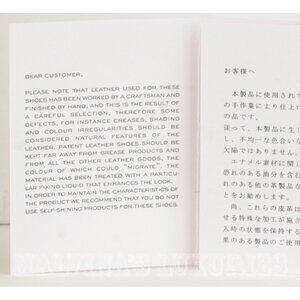 DEAR CUSTOMER,
PLEASE NOTE THAT LEATHER USED FOR THESE
SHOES HAS BEEN WORKED BY A CRAFTSMAN AND
FINISHED BY HAND, AND THIS IS THE RESULT OF
A CAREFUL SELECTION, THEREFORE SOME
DEFECTS, FOR INSTANCE CREASES, SHADING
AND COLOUR IRREGULARITIES SHOULD BE
CONSIDERED NATURAL FEATURES OF THE
LEATHER. PATENT LEATHER SHOES SHOULD BE
KEPT FAR AWAY FROM GREASE PRODUCTS AND
FROM ALL THE OTHER LEATHER GOODS, THE
COLOUR OF WHICH COULD "MIGRATE". THE
MATERIAL HAS BEEN TREATED WITH A PARTICU-
LAR FIXING LIQUID THAT ENHANCES THE LOOK.
IN ORDER TO MAINTAIN THE CHARACTERISTICS OF
THE PRODUCT WE RECOMMEND THAT YOU DO NOT
USE SELF-SHINING PRODUCTS FOR THESE SHOES.
お客様へ
本製品に使用され
の手作業により仕上
の品です。
従って、本製品に生
し、不均一な色合い
欠陥ではありません。
エナメル素材に関し
である油分を含む
れるの他の革製品な
とをお勧めします。
尚、これらの皮革は
せる特殊な加工が施さ
入時の状態を保持する
果のある製品のご使用